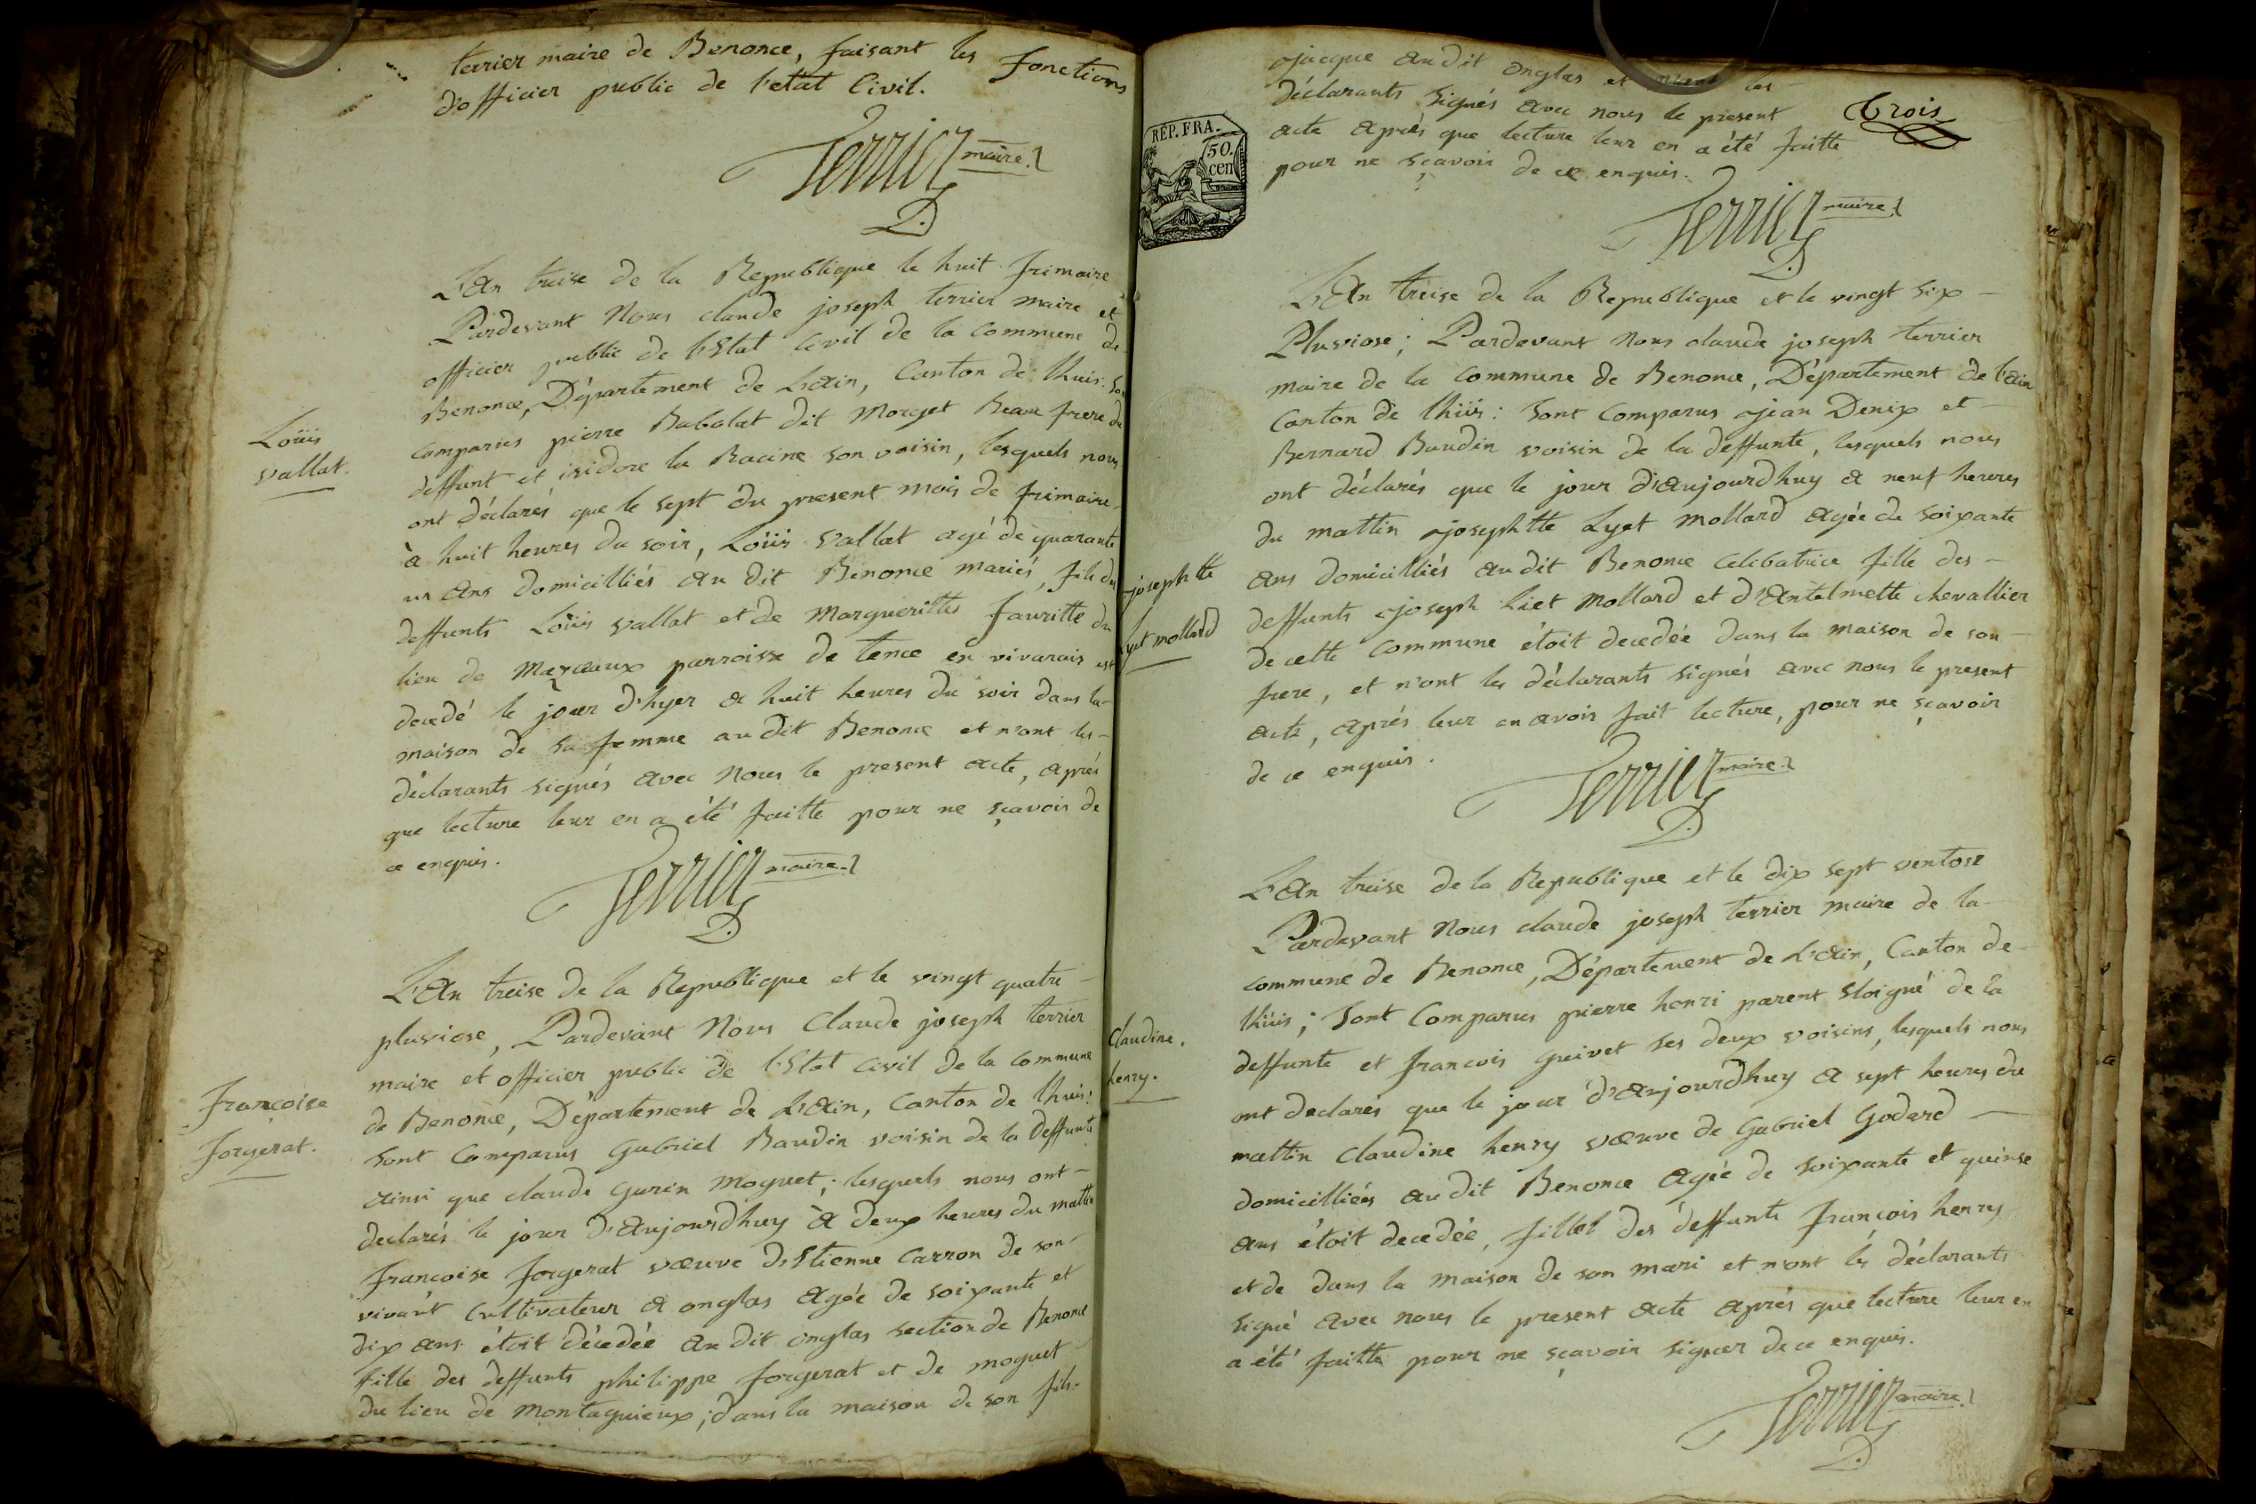 terrier maire de Benonce, faisant les fonctions
d'officier public de l'etat Civil.
Terrier maire
L'An treise de la Republique le huit frimaire
Pardevant Nous claude joseph terrier maire et
officier public de l'Etat Civil de la commune de
Benonce, Département de L'Ain, Canton de lhuis: son
comparus pierre Babolat dit Morget Beau frere du
deffunt et isidore la Racine son voisin, lesquels nous
ont déclarés que le sept du present mois de frimaire
à huit heures du soir, Loüis Vallat agé de quarante
un Ans domicilliés au dit Benonce mariés, fils des
deffunts Loüis Vallat et de Margueritte fauritte du
lieu de parroisse de tence en vivarais est
decedé le jour d'hyer a huit heures du soir dans la
maison de sa femme au dit Benonce et n'ont les
déclarants signés avec Nous le present acte, aprés
que lecture leur en a été faitte pour ne sçavoir de
ce enquis.
Loüis
Vallat.
Terrier maire
L'An treise de la Republique et le vingt quatre
pluviose, Pardevant Nous Claude joseph terrier
maire et officier public de l'Etat Civil de la commune
de Benonce, Département de L'Ain, Canton de lhuis:
sont Comparus Gabriel Baudin voisin de la deffunte
ainsi que claude gurin moguet; lesquels nous ont
declarés le jour d'Aujourdhuy à deux heures du mattin
françoise forgerat væuve d'Etienne Carron de son
vivant Cultivateur a onglas agée de soixante et
dix ans étoit décedée au dit onglas section de Benonce
fille des deffunts philippe forgerat et de moguet
du lieu de montagnieux; dans la maison de son fils
Françoise
forgerat.
Trois
REP. FRA.
50.
cen
jacque au dit onglas et n'ont les
déclarants signés avec nous le present
acte aprés que lecture leur en a été faitte
pour ne sçavoir de ce enquis.
Terrier maire
L'An treise de la Republique et le vingt six
Pluviose; Pardevant Nous claude joseph terrier
maire de la commune de Benonce, Département de l'Ain
Canton de lhüis: sont comparus jean Denix et
Bernard Baudin voisin de la deffunte, lesquels nous
ont déclarés que le jour d'Aujourdhuy a neuf heures
du mattin josephtte Lyet mollard agée de soixante
ans domicilliés au dit Benonce Celibatrice fille des
deffunts joseph Liet Mollard et d'Antelmette chevallier
de cette commune étoit decedée dans la maison de son
frere, et n'ont les déclarants signés avec nous le present
acte, aprés leur en avoir fait lecture, pour ne sçavoir
de ce enquis.
josephtte
Lyet mollard
Terrier maire
L'An treise de la Republique et le dix sept ventose
Pardevant Nous claude joseph terrier maire de la
commune de Benonce, Département de L'Ain, Canton de
lhüis; sont Comparus pierre henri parent Eloigné de la
deffunte et francois guivet ses deux voisins, lesquels nous
ont declarés que le jour d'Aujourdhuy a sept heures du
mattin Claudine henry væuve de Gabriel Godard
domicilliées au dit Benonce agée de soixante et quinse
ans étoit decedée, fille des deffunts françois henry
et de dans la maison de son mari et n'ont les déclarants
signé avec nous le present acte aprés que lecture leur en
a été faitte pour ne sçavoir signer de ce enquis.
Claudine.
henry.
Terrier maire